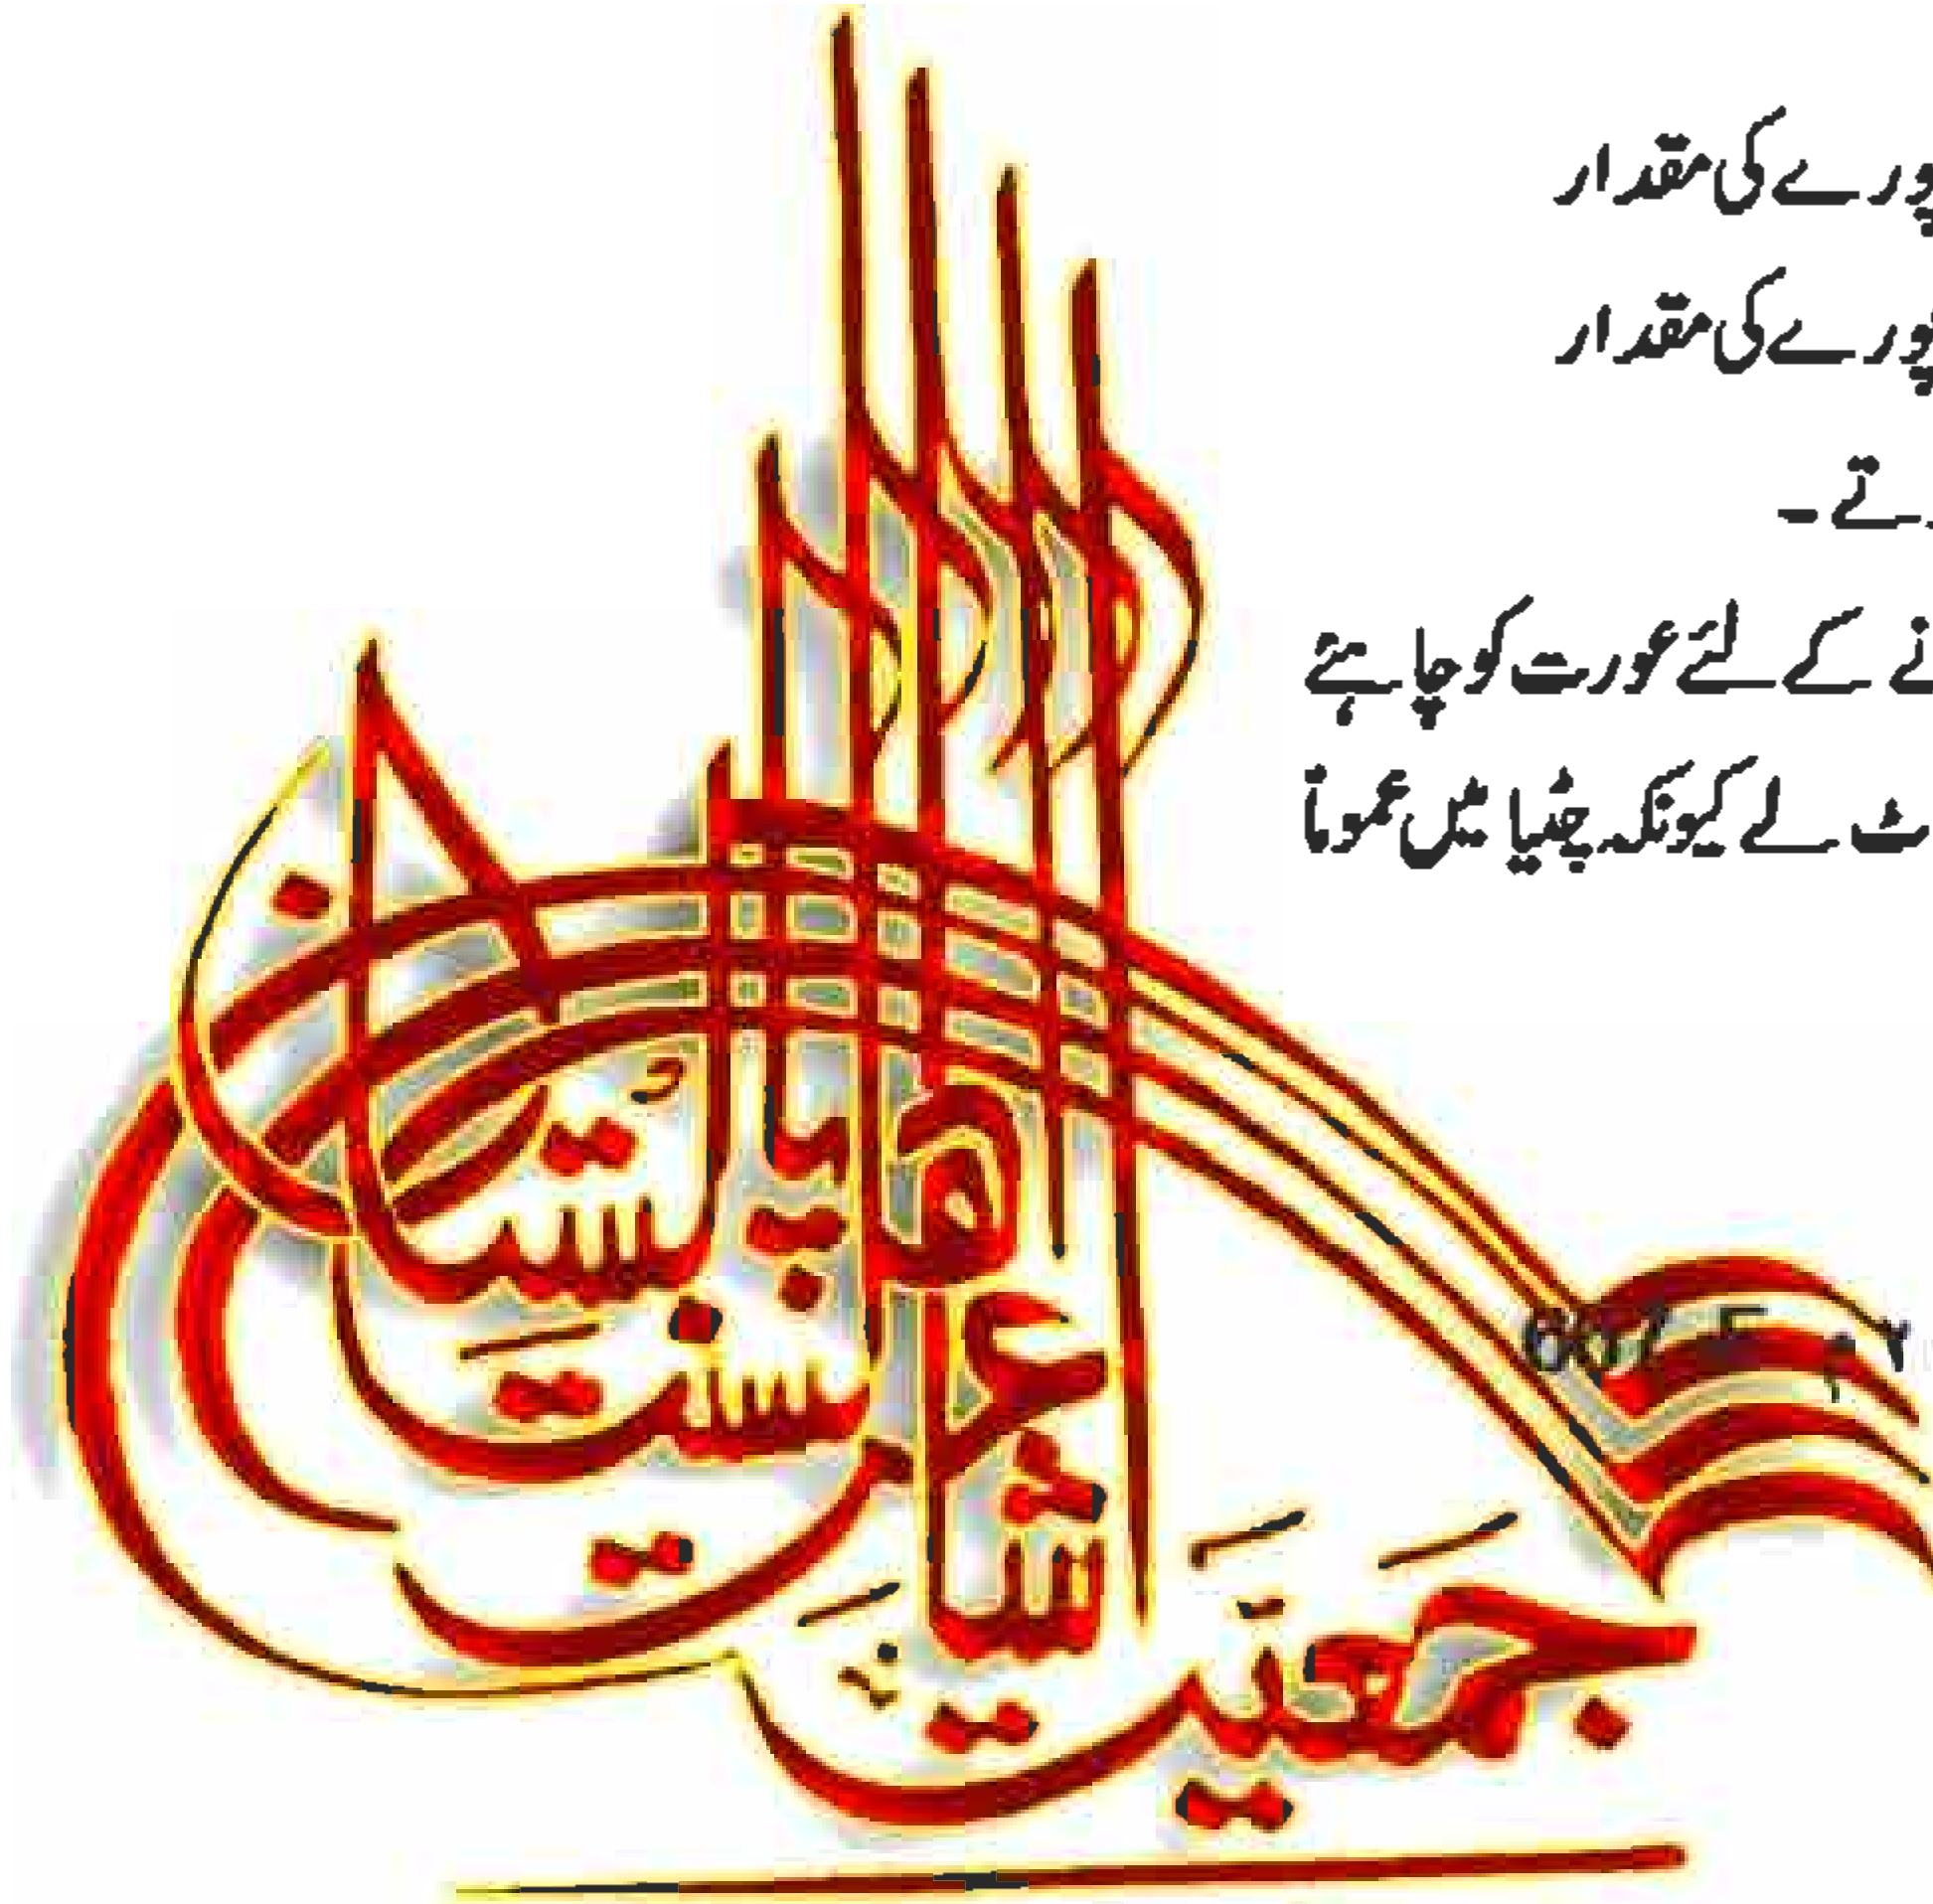 پورے کی مقدار
پورے کی مقدار
نے کے لئے عورت کو چاہئے
لے کیونکہ چٹیا میں عموماً
جمعیّت
اشاعت
اہلسنت
پاکستان